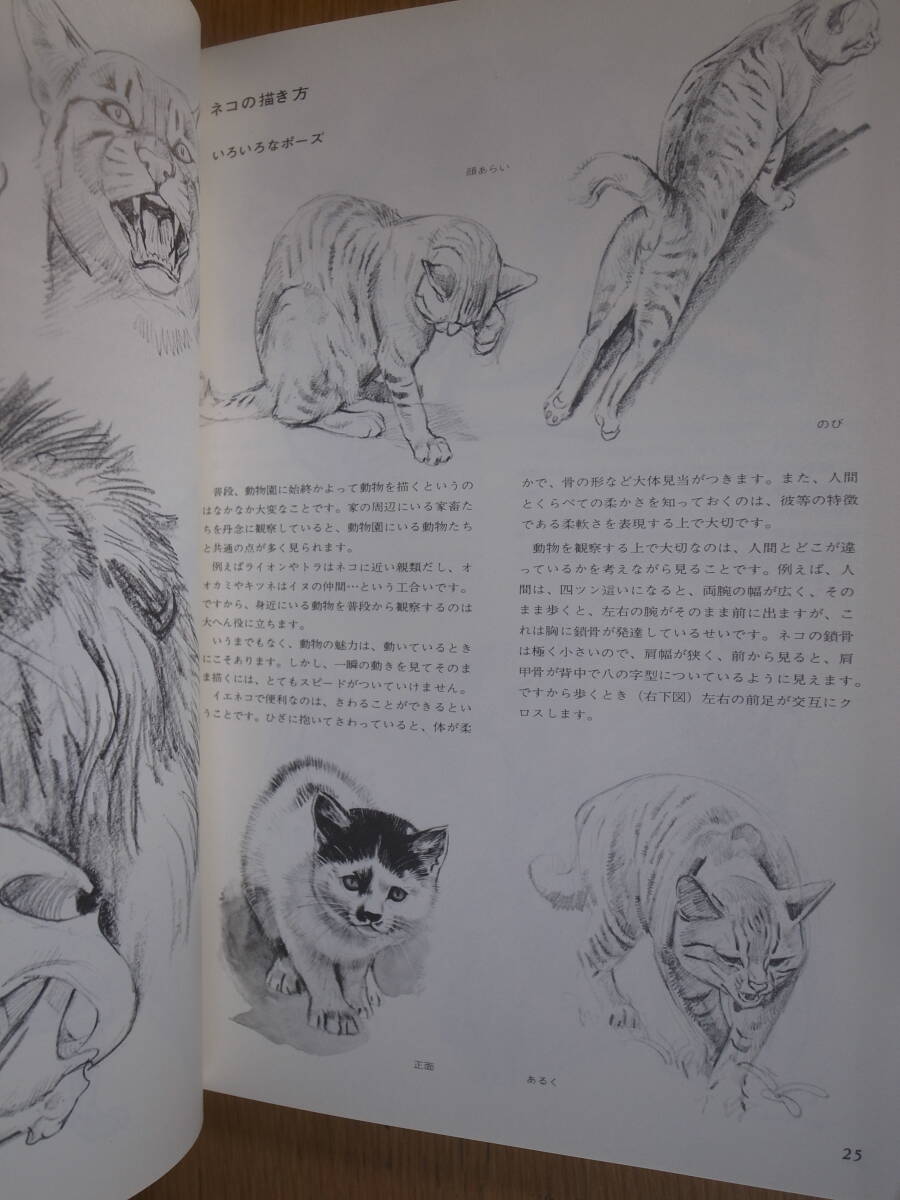 ネコの描き方
いろいろなポーズ
顔あらい
のび
普段、動物園に始終かよって動物を描くというの
はなかなか大変なことです。家の周辺にいる家畜た
ちを丹念に観察していると、動物園にいる動物たち
と共通の点が多く見られます。
例えばライオンやトラはネコに近い親類だし、オ
オカミやキツネはイヌの仲間…という工合いです。
ですから、身近にいる動物を普段から観察するのは
大へん役に立ちます。
いうまでもなく、動物の魅力は、動いているとき
にこそあります。しかし、一瞬の動きを見てそのま
ま描くには、とてもスピードがついていけません。
イエネコで便利なのは、さわることができるとい
うことです。ひざに抱いてさわっていると、体が柔
かで、骨の形など大体見当がつきます。また、人間
とくらべての柔かさを知っておくのは、彼等の特徴
である柔軟さを表現する上で大切です。
動物を観察する上で大切なのは、人間とどこが違
っているかを考えながら見ることです。例えば、人
間は、四ツン這いになると、両腕の幅が広く、その
まま歩くと、左右の腕がそのまま前に出ますが、こ
れは胸に鎖骨が発達しているせいです。ネコの鎖骨
は極く小さいので、肩幅が狭く、前から見ると、肩
甲骨が背中で八の字型についているように見えます。
ですから歩くとき（右下図）左右の前足が交互にク
ロスします。
正面
あるく
25